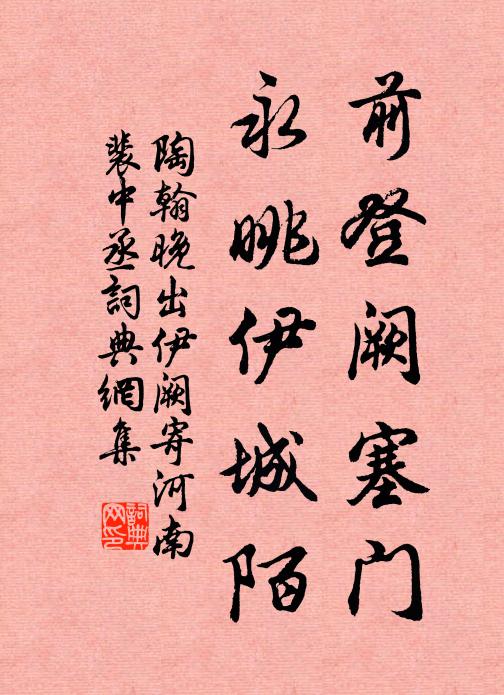 前登阙塞门
永眺伊城陌
陶翰晚出伊阙寄河南
裴中丞詞典網集
詞典
网印